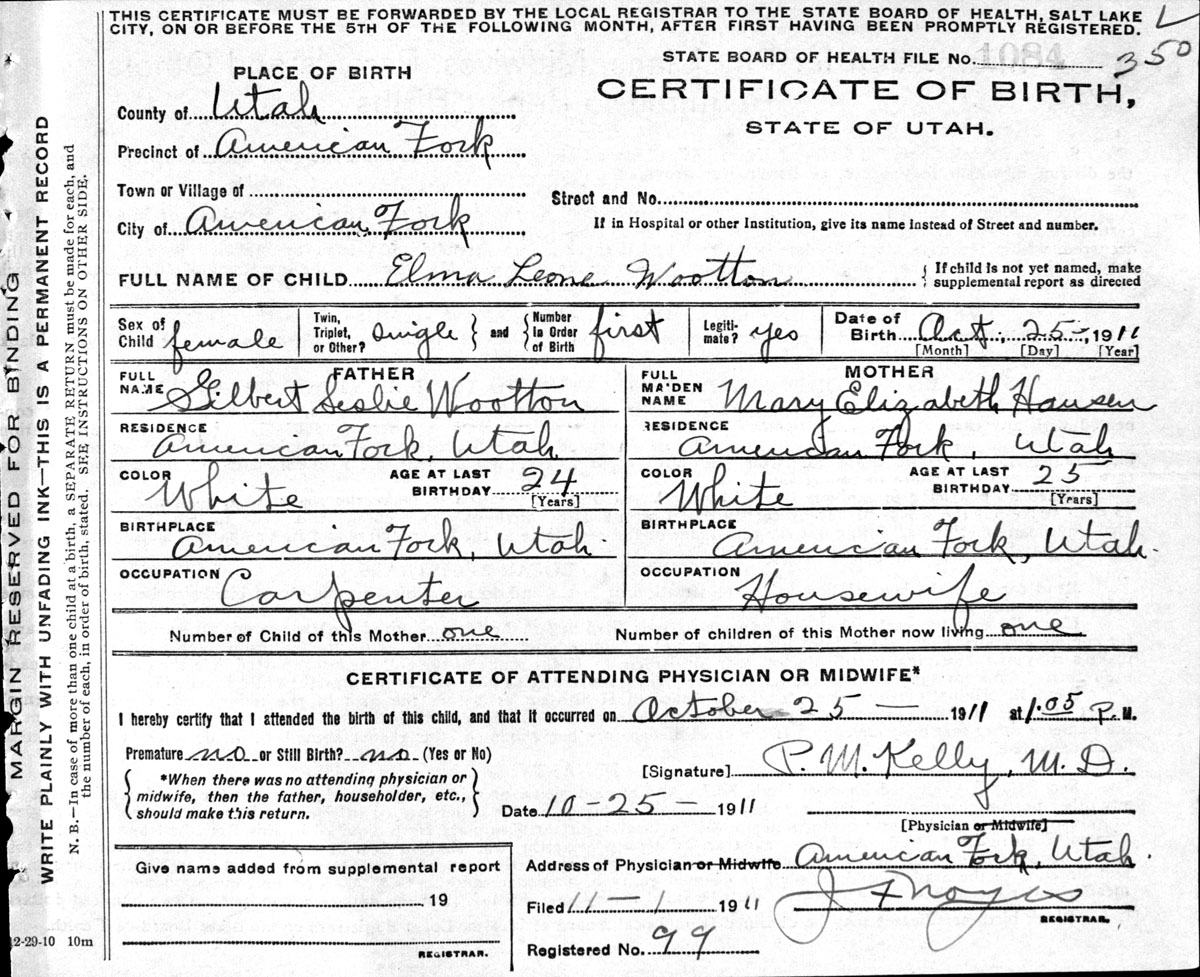 THIS CERTIFICATE MUST BE FORWARDED BY THE LOCAL REGISTRAR TO THE STATE BOARD OF HEALTH, SALT LAKE
CITY, ON OR BEFORE THE 5TH OF THE FOLLOWING MONTH, AFTER FIRST HAVING BEEN PROMPTLY REGISTERED.
STATE BOARD OF HEALTH FILE No. 1084 350
PLACE OF BIRTH
CERTIFICATE OF BIRTH,
STATE OF UTAH.
County of Utah
Precinct of American Fork
Town or Village of
Street and No.
City of American Fork
If in Hospital or other Institution, give its name instead of Street and number.
FULL NAME OF CHILD Elma Leone Wootton
{ If child is not yet named, make
supplemental report as directed
Sex of Child female
Twin, Triplet, or Other? single } and { Number in Order of Birth first
Legiti-mate? yes
Date of Birth Oct. 25-, 1911
[Month] [Day] [Year]
FATHER
FULL NAME Gilbert Leslie Wootton
RESIDENCE American Fork, Utah
COLOR White AGE AT LAST BIRTHDAY 24 [Years]
BIRTHPLACE American Fork, Utah.
OCCUPATION Carpenter
MOTHER
FULL MAIDEN NAME Mary Elizabeth Hansen
RESIDENCE American Fork, Utah
COLOR White AGE AT LAST BIRTHDAY 25 [Years]
BIRTHPLACE American Fork, Utah.
OCCUPATION Housewife
Number of Child of this Mother one
Number of children of this Mother now living one
CERTIFICATE OF ATTENDING PHYSICIAN OR MIDWIFE*
I hereby certify that I attended the birth of this child, and that it occurred on October 25 — 1911 at 1:05 P. M.
Premature no or Still Birth? no (Yes or No)
[Signature] P. M. Kelly, M. D.
{ *When there was no attending physician or
midwife, then the father, householder, etc.,
should make this return. }
Date 10-25- 1911
[Physician or Midwife]
Address of Physician or Midwife American Fork, Utah.
Give name added from supplemental report
19
REGISTRAR.
Filed 11-1 1911
J F Noyes
REGISTRAR.
Registered No. 99
12-29-10 10m
MARGIN RESERVED FOR BINDING
WRITE PLAINLY WITH UNFADING INK—THIS IS A PERMANENT RECORD
N. B.—In case of more than one child at a birth, a SEPARATE RETURN must be made for each, and
the number of each, in order of birth, stated. SEE INSTRUCTIONS ON OTHER SIDE.